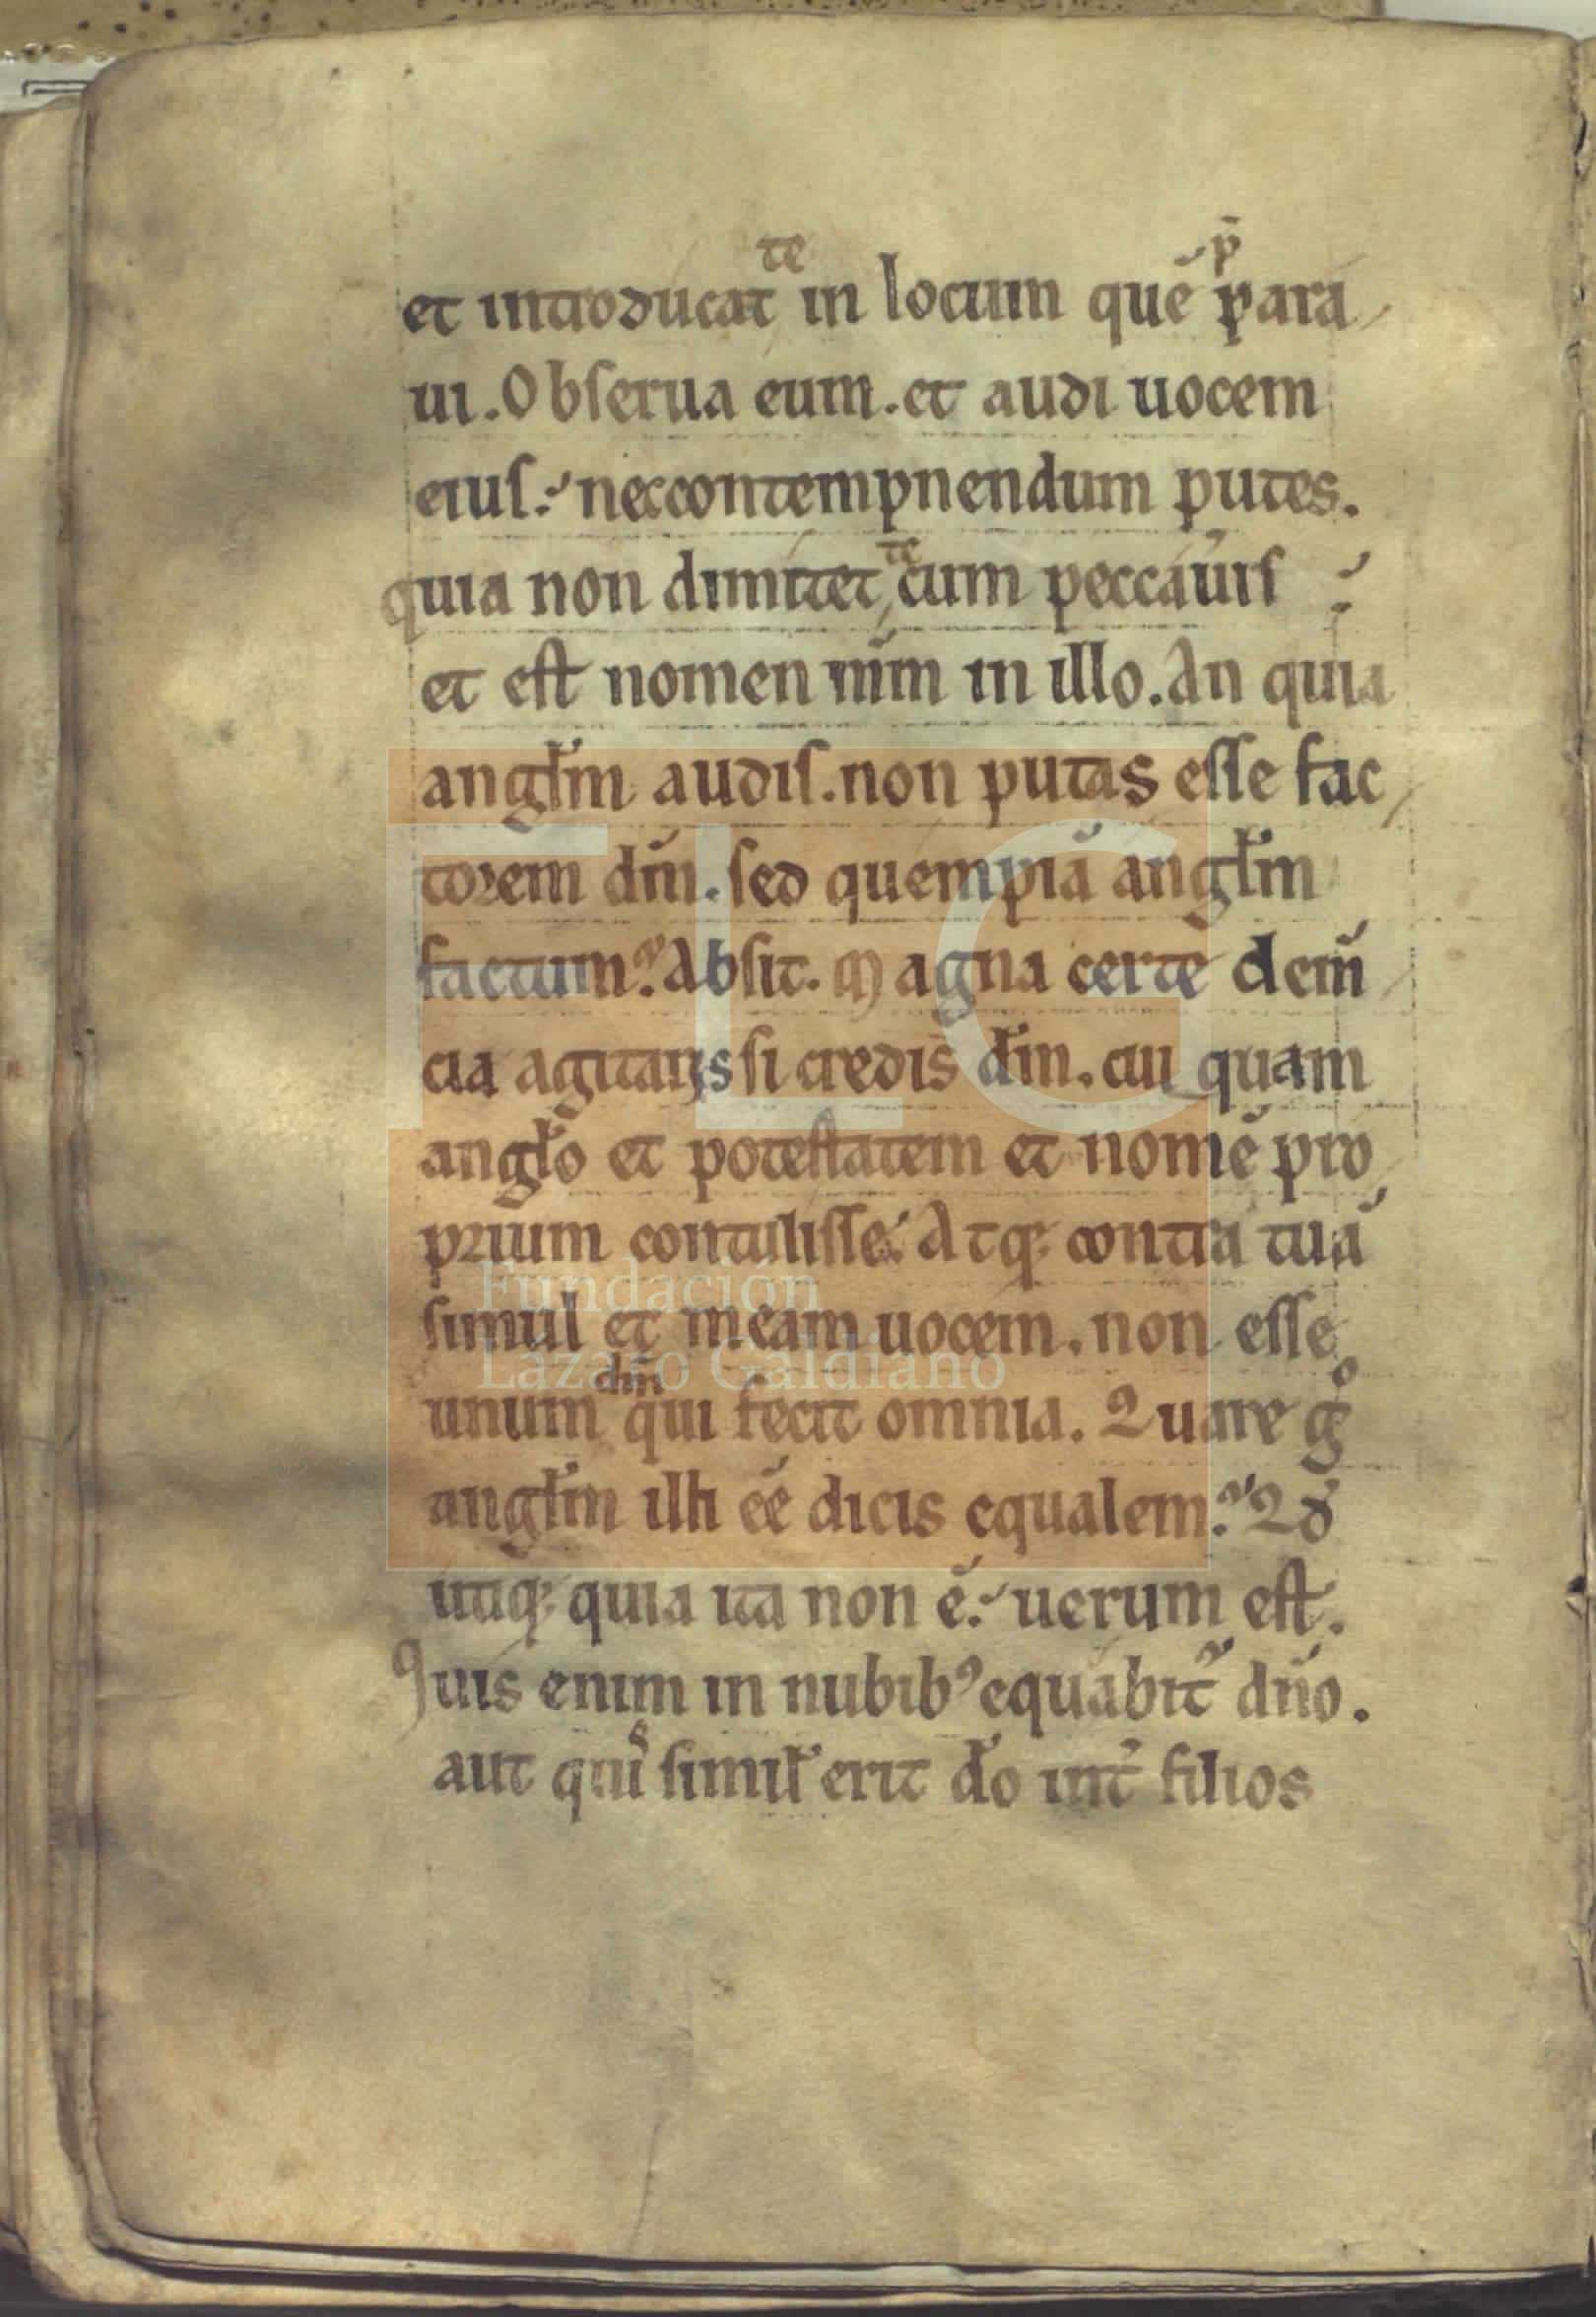 te p̄
et introducat in locum quē para
ui. Obserua eum. et audi uocem
eius. nec contempnendum putes.
te
quia non dimittet cum peccauis
et est nomen mm̄ in illo. An quia
angl̄m audis. non putas esse fac
torem dm̄. sed quempiā angl̄m
factum? Absit. Magna certe dem̄
cia agitaris si credis dm̄. cui quam
angl̄o et potestatem et nomē pro
prium contulisse. Atq; contra tuā
simul et meam uocem. non esse
dm̄
unum qui fecit omnia. Quare gͦ
angl̄m illi eē dicis equalem? Qd̄
utiq; quia ita non ē. uerum est.
Quis enim in nubibꝰ equabit᷑ dn̄o.
aut quis simil̄ erit do īnt̄ filios
FLG
Fundación
Lázaro Galdiano